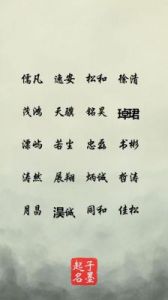 儒凡 逸安 松和 徐清
茂鸿 天骥 铭昊 琸珺
濡屿 若尘 忠磊 书彬
涛然 展翔 炳诚 哲涛
月昌 淏诚 同和 佳松
子墨
起名